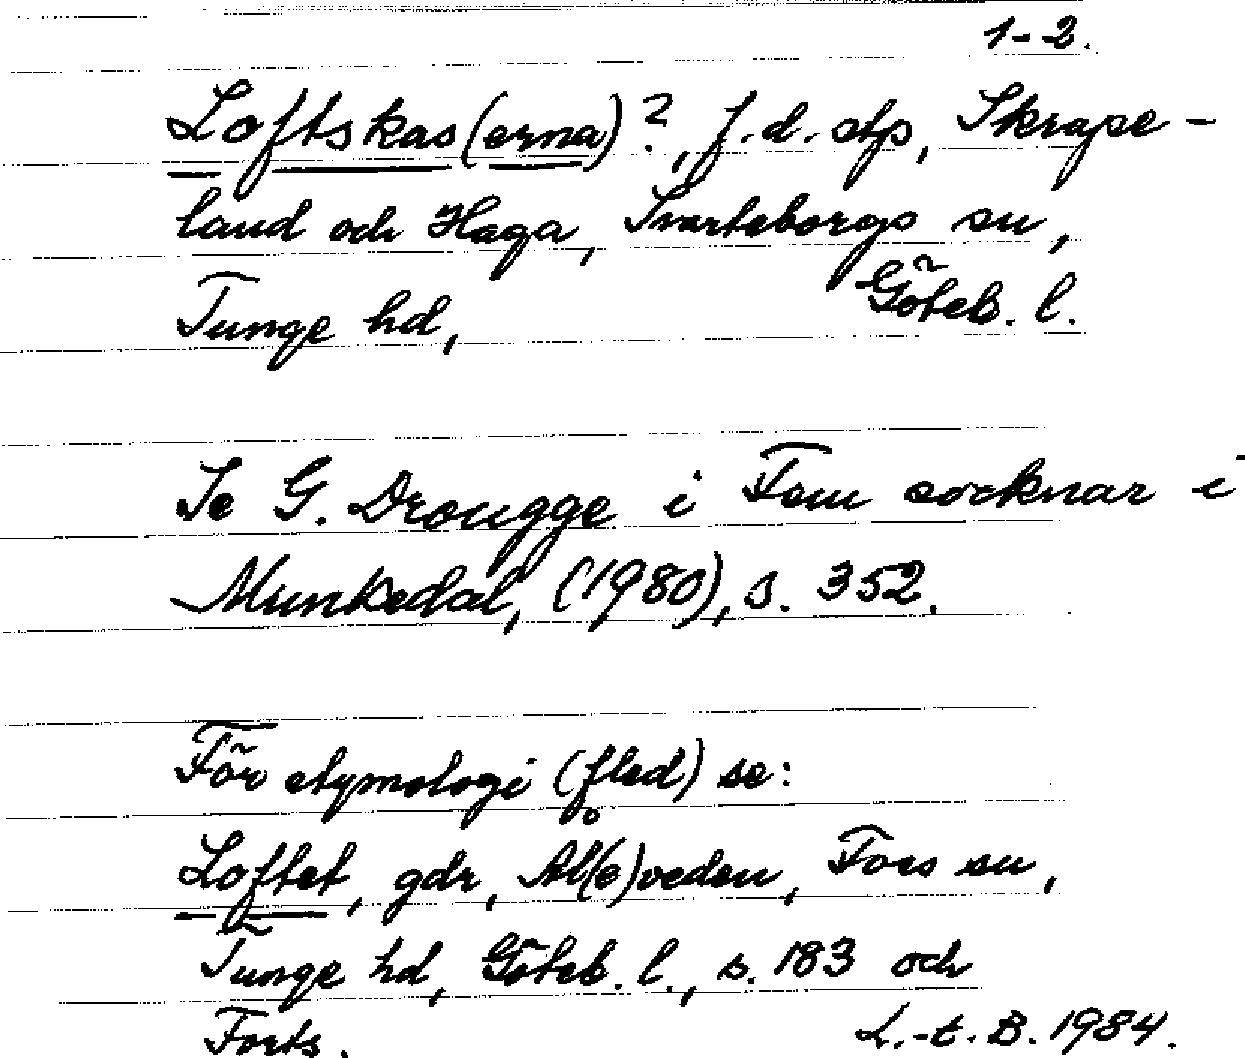 1-2.
Loftskas(erna)?, f.d. stp, Skrape-
land och Haga, Svarteborgs sn,
Tunge hd, Göteb. l.
Se G. Drougge i Fem socknar i
Munkedal, (1980), s. 352.
För etymologi (fled) se:
Loftet, gdr, Ål(e)veden, Foss sn,
Tunge hd, Göteb. l., s. 183 och
Forts. L.-t. B. 1984.